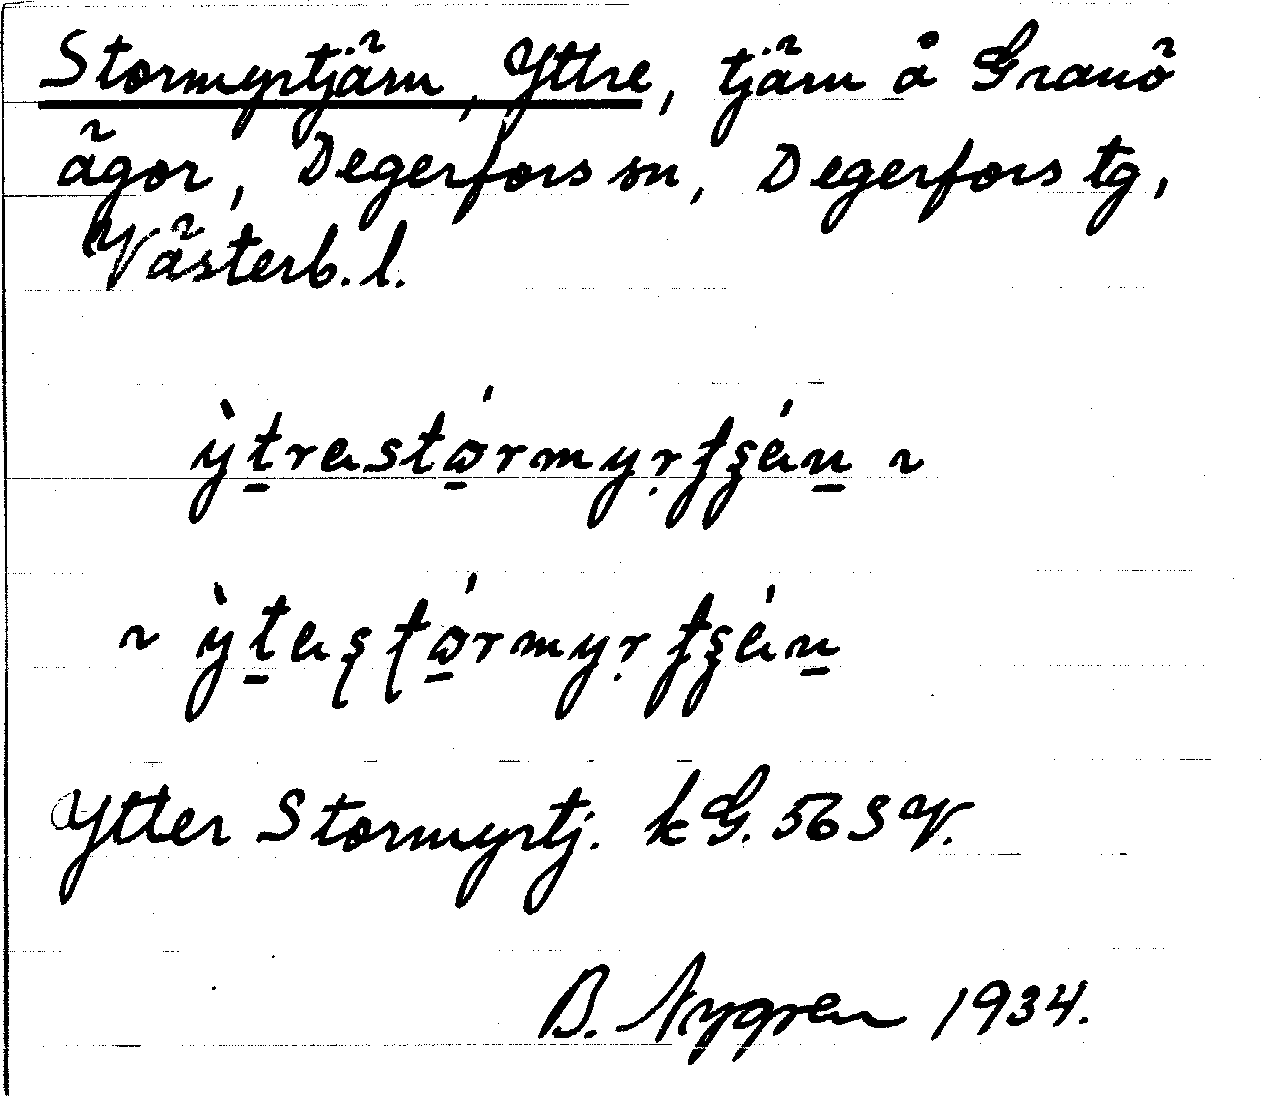 Stormyrtjärn, Yttre, tjärn å Granö
ägor, Degerfors sn, Degerfors tg,
Västerb. l.
ỳt̠rast̠ǻrmyṛtʂán̠ ~
~ ỳt̠aʂʈǻrmyṛtʂán̠
Ytter Stormyrtj. kG. 56 SV.
B. Nygren 1934.